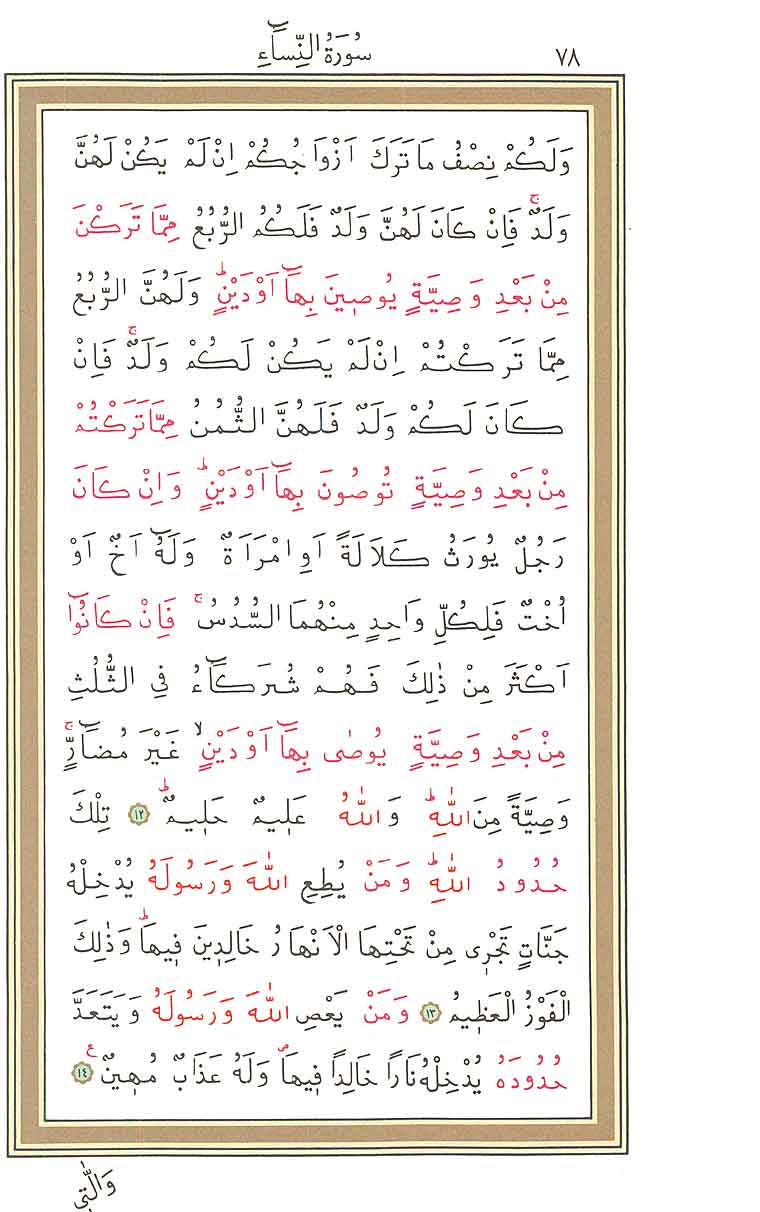 ٧٨
سُورَةُ النِّسَٓاءِ
وَلَكُمْ نِصْفُ مَا تَرَكَ اَزْوَاجُكُمْ اِنْ لَمْ يَكُنْ لَهُنَّ
وَلَدٌۚ فَاِنْ كَانَ لَهُنَّ وَلَدٌ فَلَكُمُ الرُّبُعُ مِمَّا تَرَكْنَ
مِنْ بَعْدِ وَصِيَّةٍ يُوص۪ينَ بِهَٓا اَوْ دَيْنٍۜ وَلَهُنَّ الرُّبُعُ
مِمَّا تَرَكْتُمْ اِنْ لَمْ يَكُنْ لَكُمْ وَلَدٌۚ فَاِنْ
كَانَ لَكُمْ وَلَدٌ فَلَهُنَّ الثُّمُنُ مِمَّا تَرَكْتُمْ
مِنْ بَعْدِ وَصِيَّةٍ تُوصُونَ بِهَٓا اَوْ دَيْنٍۜ وَاِنْ كَانَ
رَجُلٌ يُورَثُ كَلَالَةً اَوِ امْرَاَةٌ وَلَهُٓ اَخٌ اَوْ
اُخْتٌ فَلِكُلِّ وَاحِدٍ مِنْهُمَا السُّدُسُۚ فَاِنْ كَانُٓوا
اَكْثَرَ مِنْ ذٰلِكَ فَهُمْ شُرَكَٓاءُ فِي الثُّلُثِ
مِنْ بَعْدِ وَصِيَّةٍ يُوصٰى بِهَٓا اَوْ دَيْنٍۙ غَيْرَ مُضَٓارٍّۚ
وَصِيَّةً مِنَ اللّٰهِۜ وَاللّٰهُ عَل۪يمٌ حَل۪يمٌۜ ﴿١٢﴾ تِلْكَ
حُدُودُ اللّٰهِۜ وَمَنْ يُطِعِ اللّٰهَ وَرَسُولَهُ يُدْخِلْهُ
جَنَّاتٍ تَجْر۪ي مِنْ تَحْتِهَا الْاَنْهَارُ خَالِد۪ينَ ف۪يهَاۜ وَذٰلِكَ
الْفَوْزُ الْعَظ۪يمُ ﴿١٣﴾ وَمَنْ يَعْصِ اللّٰهَ وَرَسُولَهُ وَيَتَعَدَّ
حُدُودَهُ يُدْخِلْهُ نَارًا خَالِدًا ف۪يهَاۖ وَلَهُ عَذَابٌ مُه۪ينٌ۟ ﴿١٤﴾
وَالّٰت۪ي